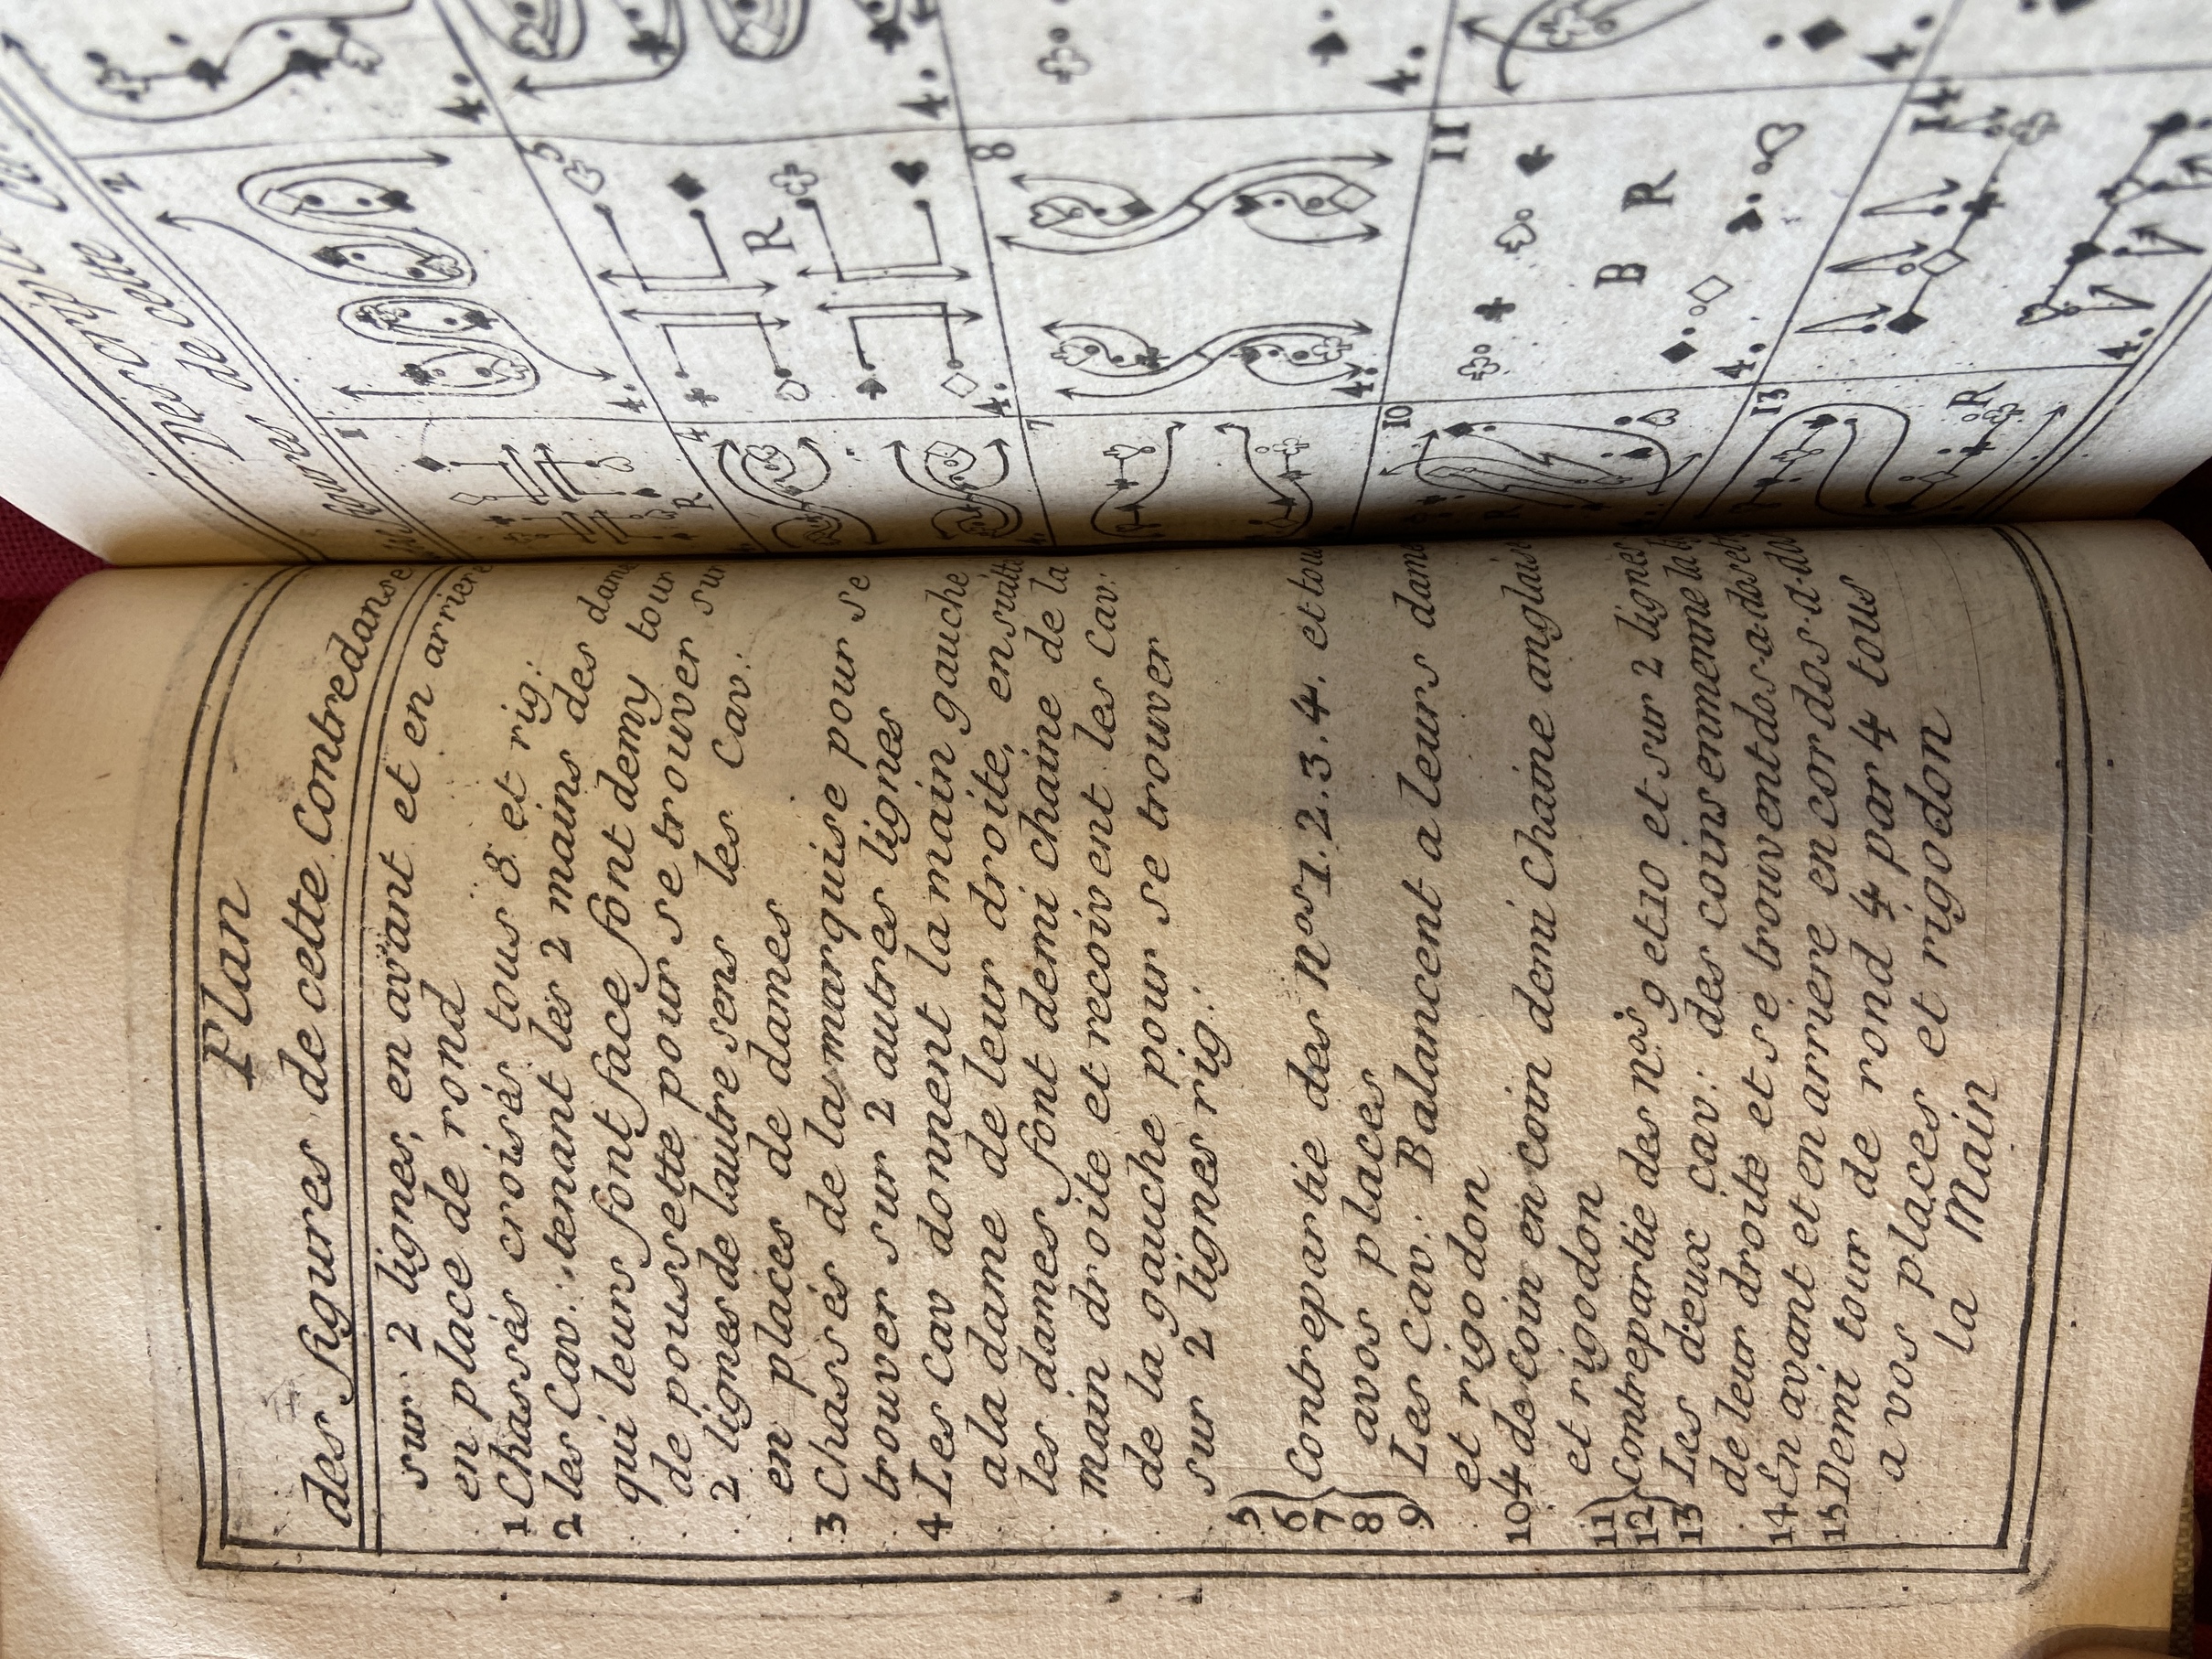 Plan
des figures de cette Contredanse
sur 2 lignes, en avant et en arriere
en place de rond
1 Chassés croisés tous 8 et rig:
2 les Cav: tenant les 2 mains des dame
qui leurs font face font demy tour
de poussette pour se trouver sur
2 lignes de lautre sens les Cav:
en places de dames
3 Chassés de la marquise pour se
trouver sur 2 autres lignes
4 Les Cav donnent la main gauche
a la dame de leur droite, ensuitte
les dames font demi chaine de la
main droite et recoivent les Cav:
de la gauche pour se trouver
sur 2 lignes rig:
5
6 Contrepartie des Nos 1. 2. 3. 4. et tou
7
8 avos places
9 Les Cav: Balancent a leurs dam
et rigodon
10 4 de coin en coin demi Chaine anglaise
et rigodon
11
12 Contrepartie des nos 9 et 10 et sur 2 lignes
13 Les deux cav: des coins enmenne la
de leur droite et se trouvent dos-a-dos et
14 En avant et en arriere en cor dos-a-do
15 Demi tour de rond 4 par 4 tous
a vos places et rigodon
la Main
de cette
figures
1
2
4.
4.
R
4
5
R
4.
4.
7
8
4.
4.
10
11
B R
4.
4.
13
14
R
4.